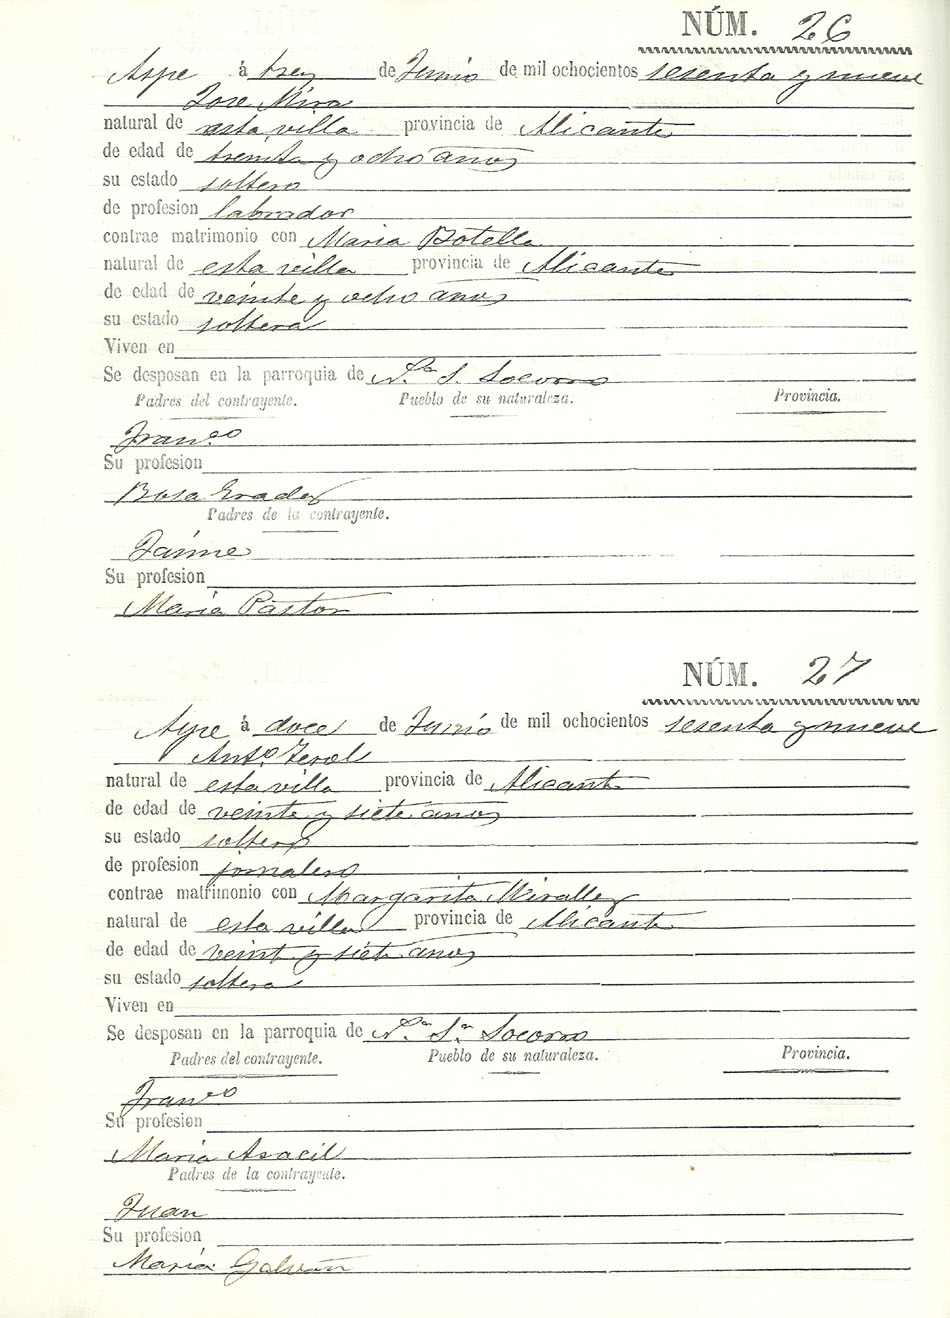 NÚM. 26
Aspe á trez de Junio de mil ochocientos sesenta y nueve
Jose Mira
natural de esta villa provincia de Alicante
de edad de treinta y ocho años
su estado soltero
de profesion labrador
contrae matrimonio con Maria Botella
natural de esta villa provincia de Alicante
de edad de veinte y ocho años
su estado soltera
Viven en
Se desposan en la parroquia de N.ª S. Socorro
Padres del contrayente. Pueblo de su naturaleza. Provincia.
Franco
Su profesion
Rosa
Padres de la contrayente.
Jaime
Su profesion
Maria Pastor
NÚM. 27
Aspe á doce de Junio de mil ochocientos sesenta y nueve
Antº Terol
natural de esta villa provincia de Alicante
de edad de veinte y siete años
su estado soltero
de profesion jornalero
contrae matrimonio con Margarita Mirallez
natural de esta villa provincia de Alicante
de edad de veint y siete años
su estado soltera
Viven en
Se desposan en la parroquia de N.ª S.ª Socorro
Padres del contrayente. Pueblo de su naturaleza. Provincia.
Franco
Su profesion
Maria Asacil
Padres de la contrayente.
Juan
Su profesion
Maria Galvañ